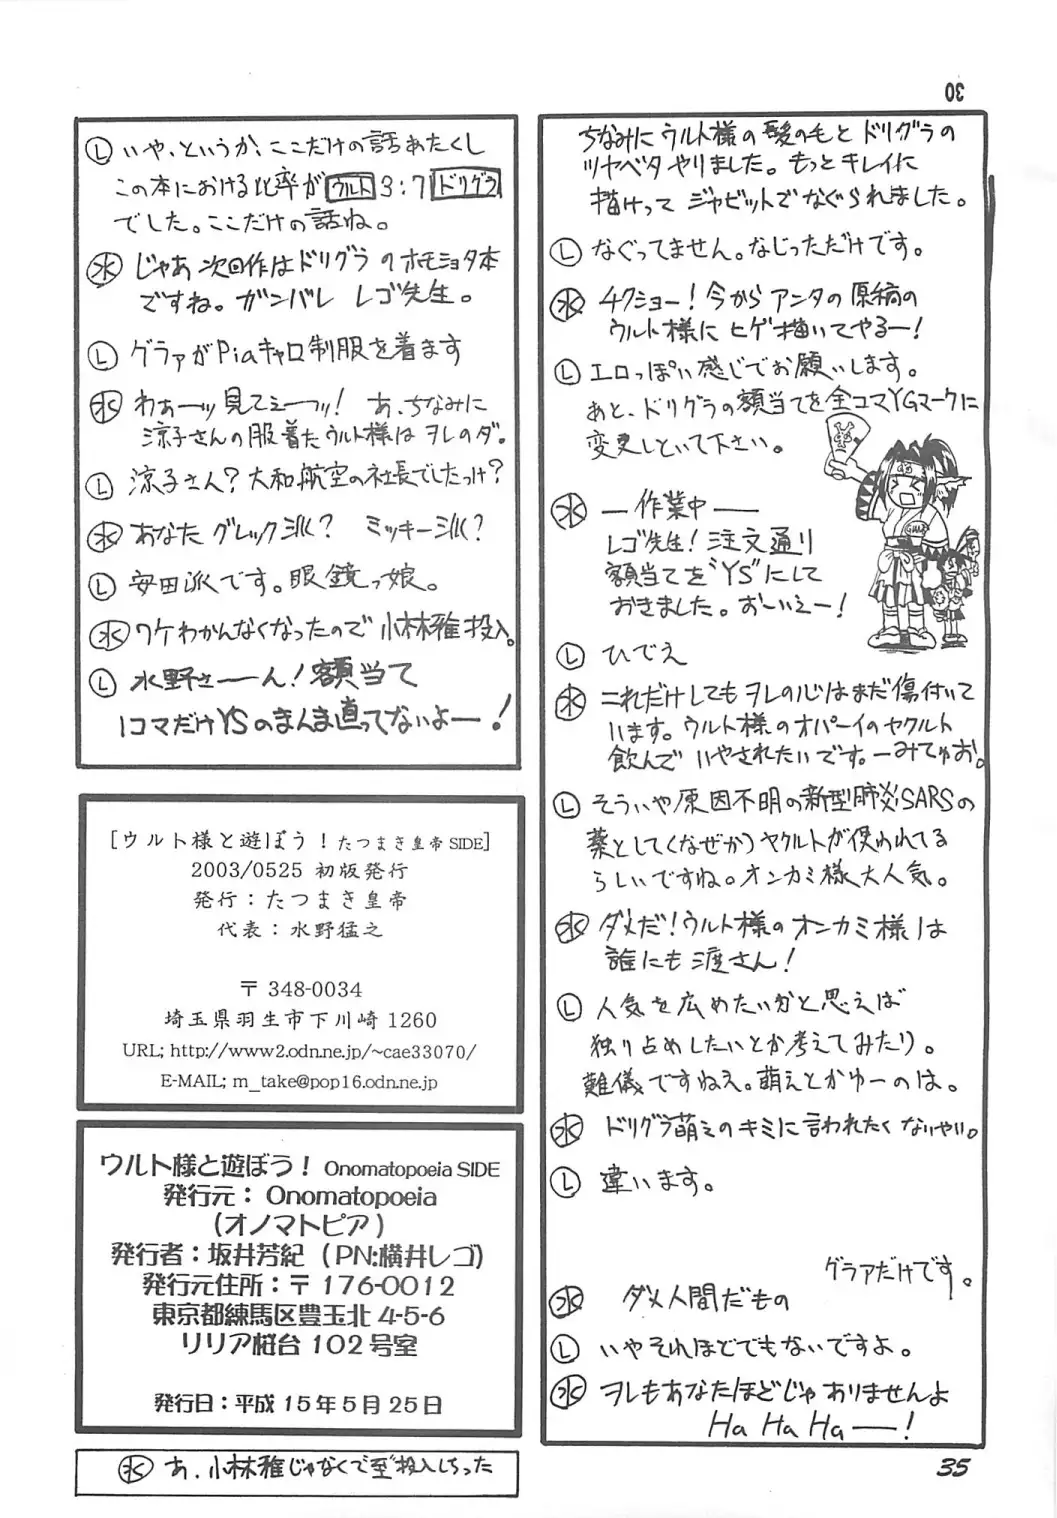 30
ちなみにウルト様の髪の毛とドリグラの
ツヤベタやりました。もっとキレイに
描けって ジャビットでなぐられました。
Ⓛ なぐってません。なじっただけです。
㊌ チクショー!今からアンタの原稿の
ウルト様に ヒゲ描いてやるー!
Ⓛ エロっぽい感じでお願いします。
あと、ドリグラの額当てを全コマYGマークに
変更しといて下さい。
㊌ ―作業中―
レゴ先生!注文通り
額当てを"YS"にして
おきました。おーいえー!
Ⓛ ひでえ
㊌ これだけしてもヲレの心はまだ傷付いて
います。ウルト様のオパーイのヤクルト
飲んで いやされたいです。―みてゅお。
Ⓛ そういや原因不明の新型肺炎SARSの
薬として(なぜか)ヤクルトが使われてる
らしいですね。オンカミ様大人気。
㊌ ダメだ!ウルト様のオンカミ様は
誰にも渡さん!
Ⓛ 人気を広めたいかと思えば
独り占めしたいとか考えてみたり。
難儀ですねえ。萌えとかゆーのは。
㊌ ドリグラ萌えのキミに言われたくないやい。
Ⓛ 違います。
グラァだけです。
㊌ ダメ人間だもの
Ⓛ いやそれほどでもないですよ。
㊌ ヲレもあなたほどじゃありませんよ
Ha Ha Ha―!
Ⓛ いや、というか、ここだけの話あたくし
この本における比率がウルト3:7ドリグラ
でした。ここだけの話ね。
㊌ じゃあ次回作はドリグラのホモショタ本
ですね。ガンバレ レゴ先生。
Ⓛ グラァがPiaキャロ制服を着ます
㊌ わぁーッ見てぇーッ! あ、ちなみに
涼子さんの服着たウルト様はヲレのダ。
Ⓛ 涼子さん?大和航空の社長でしたっけ?
㊌ あなた グレック派? ミッキー派?
Ⓛ 安田派です。眼鏡っ娘。
㊌ ワケわかんなくなったので小林雅投入。
Ⓛ 水野さーん!額当て
1コマだけYSのまんま直ってないよー!
[ウルト様と遊ぼう!たつまき皇帝SIDE]
2003/0525 初版発行
発行:たつまき皇帝
代表:水野猛之
〒348-0034
埼玉県羽生市下川崎1260
URL; http://www2.odn.ne.jp/~cae33070/
E-MAIL; m_take@pop16.odn.ne.jp
ウルト様と遊ぼう! Onomatopoeia SIDE
発行元:Onomatopoeia
(オノマトピア)
発行者:坂井芳紀(PN:横井レゴ)
発行元住所:〒176-0012
東京都練馬区豊玉北4-5-6
リリア桜台102号室
発行日:平成15年5月25日
㊌ あ、小林雅じゃなくて至"投入しちった
35